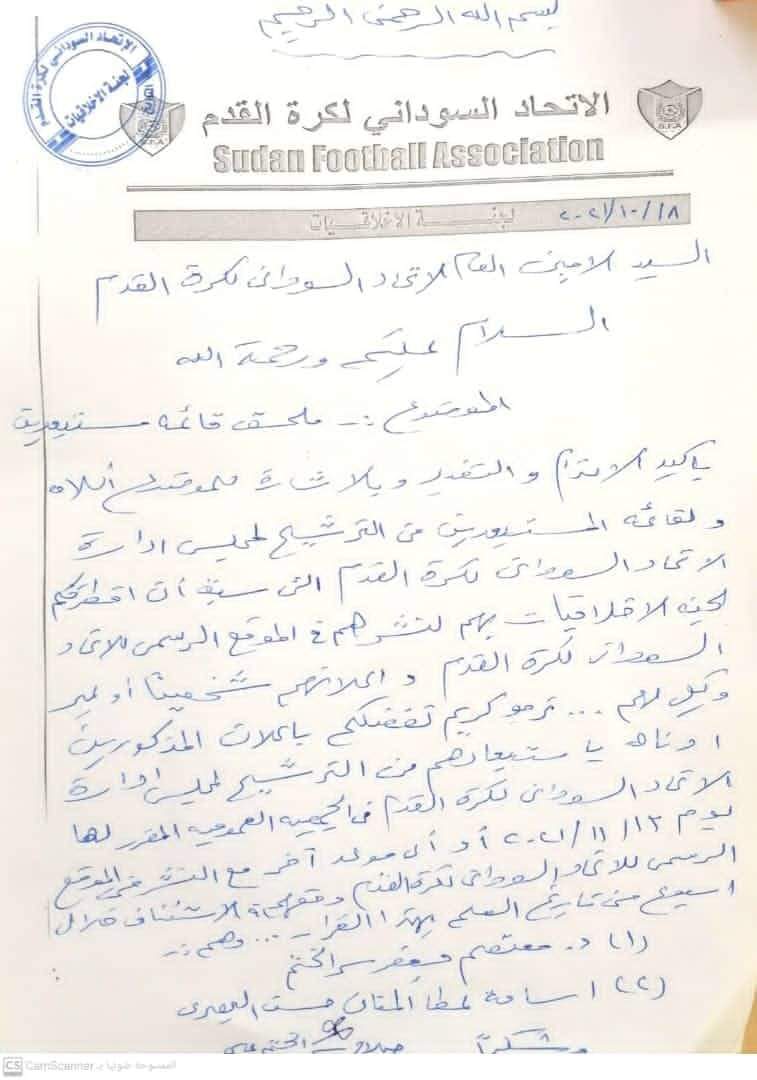 بسم الله الرحمن الرحيم
الاتحاد السوداني لكرة القدم
لجنة الاخلاقيات
الاتحاد السوداني لكرة القدم
Sudan Football Association
S.F.A
S.F.A
لجنة الاخلاقيات ٢٠٢١/١٠/١٨
السيد الامين العام للاتحاد السوداني لكرة القدم
السلام عليكم ورحمة الله
الموضوع :- ملحق قائمة مستبعدين
بأكيد الاحترام والتقدير وبالاشارة للموضوع أعلاه
ولقائمة المستبعدين من الترشيح لمجلس ادارة
الاتحاد السوداني لكرة القدم التي سبق أن اخطرتكم
لجنة الاخلاقيات بهم لنشرهم في الموقع الرسمي للاتحاد
السوداني لكرة القدم و اعلانهم شخصياً أو عبر
وكيل لهم ... نرجو كريم تفضلكم باعلان المذكورين
ادناه باستبعادهم من الترشيح لمجلس ادارة
الاتحاد السوداني لكرة القدم في الجمعية العمومية المقرر لها
يوم ٢٠٢١/١١/١٣ أو أي موعد آخر مع النشر في الموقع
الرسمي للاتحاد السوداني لكرة القدم الاستئناف خلال
اسبوع من تاريخ العلم بهذا القرار ... وهم :-
(١) د. معتصم جعفر سر الختم
(٢) اسامة عطا المنان حسن
وشكراً
CS CamScanner الممسوحة ضوئيا بـ